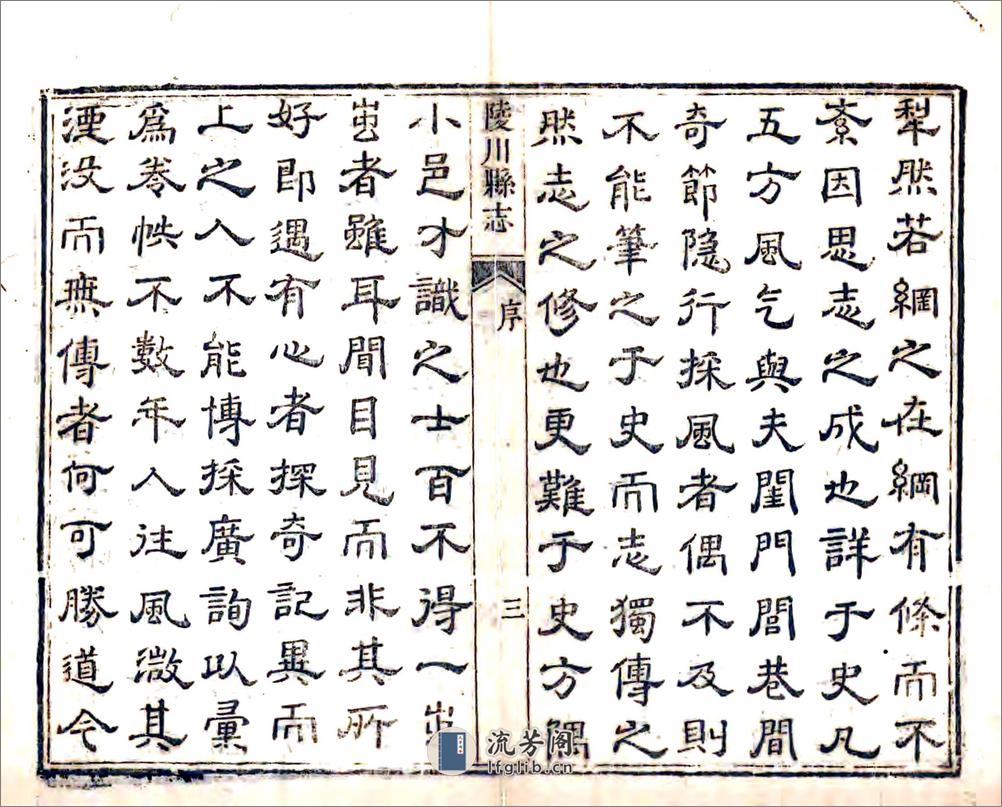 犁然若網之在綱有條而不
紊因思志之成也詳于史凡
五方風气與夫閨門閭巷間
奇節隱行採風者偶不及則
不能筆之于史而志獨傳之
然志之修也更難于史方隅
陵川縣志
序
三
小邑才識之士百不得一蚩
蚩者雖耳聞目見而非其所
好即遇有心者探奇記異而
上之人不能博採廣詢以彙
爲卷帙不數年人往風微其
湮没而無傳者何可勝道今
流芳阁
lfglib.cn